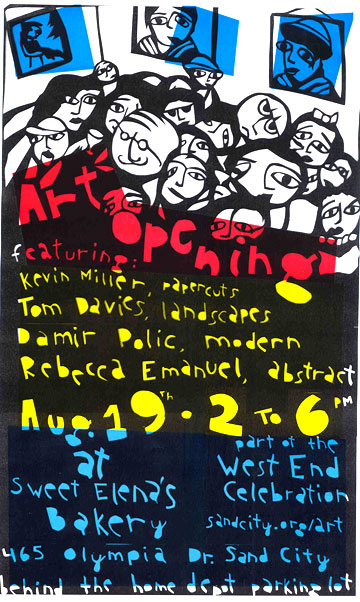 Art
Opening
featuring:
Kevin Miller, papercuts
Tom Davies, landscapes
Damir Polic, modern
Rebecca Emanuel, abstract
Aug. 19TH • 2 To 6 PM
at
Sweet Elena's
Bakery
part of the
West End
Celebration
sandcity.org/art
465 Olympia Dr. Sand City
behind the home depot parking lot